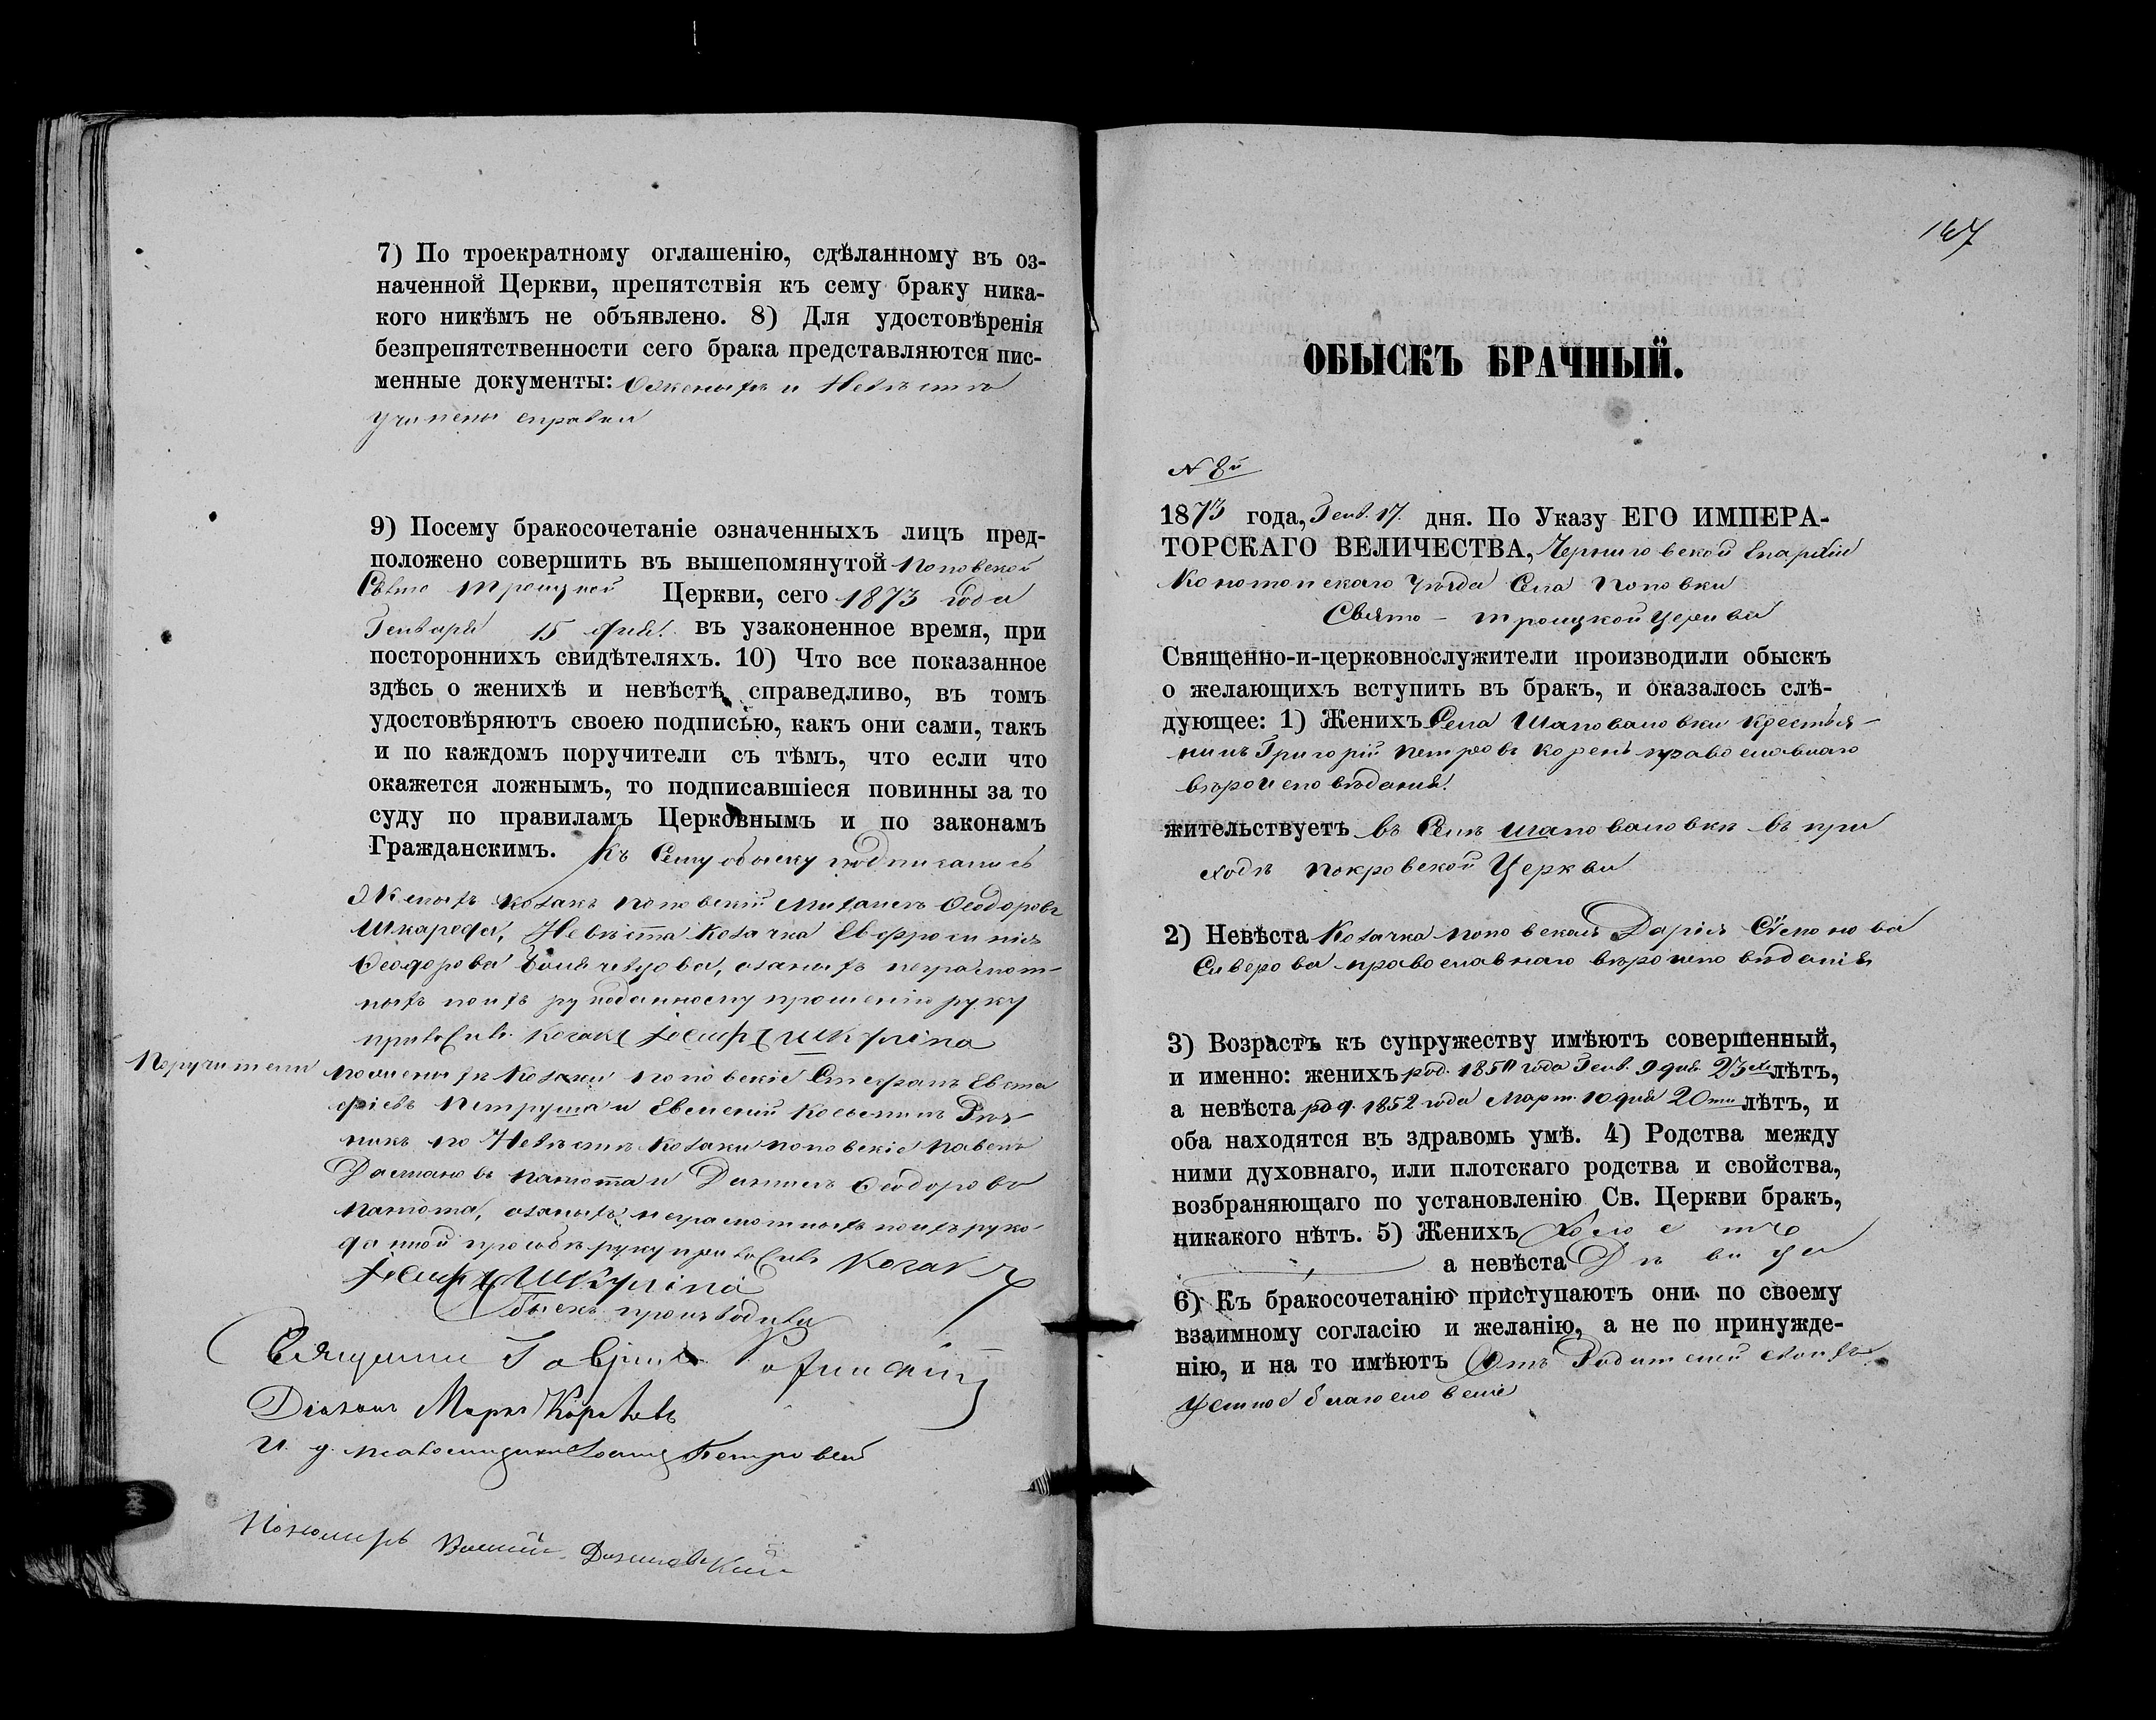 7) По троекратному оглашенію, сдѣланному въ оз-
наченной Церкви, препятствія къ сему браку ника-
кого никѣмъ не объявлено. 8) Для удостовѣренія
безпрепятственности сего брака представляются пис-
менные документы: О женихѣ и Невѣстѣ
учинены справки
9) Посему бракосочетаніе означенныхъ лицъ пред-
положено совершить въ вышепомянутой Поповской
Свято Троицкой Церкви, сего 1873 года
Генваря 15 дня. въ узаконенное время, при
постороннихъ свидѣтеляхъ. 10) Что все показанное
здѣсь о женихѣ и невѣстѣ справедливо, въ томъ
удостовѣряютъ своею подписью, какъ они сами, такъ
и по каждомъ поручители съ тѣмъ, что если что
окажется ложнымъ, то подписавшіеся повинны за то
суду по правиламъ Церковнымъ и по законамъ
Гражданскимъ. Къ Сему обыску подписались
Женихъ козакъ поповскій Михаилъ Ѳеодоровъ
Шкарефа, Невѣста Козачка Евфросинія
Ѳеодорова а за нихъ неграмот-
ныхъ по ихъ прошенію руку
Козакъ
Поручители по женихѣ Козаки поповскіе Стефанъ Евста
фіевъ Петруша и Евсевій Косьминъ
никъ по Невѣстѣ Козаки поповскіе Павелъ
Дамановъ и Даніилъ Ѳеодоровъ
а за нихъ неграмотныхъ по ихъ руко
данной прозьбѣ руку Козакъ
Обыскъ производили
Священникъ Гавріилъ
Діаконъ Маркъ
И. д. псаломщика Петровскій
Пономарь
167
ОБЫСКЪ БРАЧНЫЙ.
N 8й
1873 года, Генв. 17. дня. По Указу ЕГО ИМПЕРА-
ТОРСКАГО ВЕЛИЧЕСТВА, Черниговской Епархіи
Конотопскаго Уѣзда Села Поповки
Свято - Троицкой Церкви
Священно-и-церковнослужители производили обыскъ
о желающихъ вступить въ бракъ, и оказалось слѣ-
дующее: 1) Женихъ Села Шаповаловки Крестья-
нинъ Григорій Петровъ Корень православнаго
вѣроисповѣданія
жительствуетъ въ Селѣ Шаповаловкѣ въ при
ходѣ Покровской Церкви
2) Невѣста Козачка поповская Дарія Симонова
Сиверова православнаго вѣроисповѣданія
3) Возрастъ къ супружеству имѣютъ совершенный,
и именно: женихъ род. 1850 года Генв. 9 дня 23хъ лѣтъ,
а невѣста род. 1852 года Март. 10 дня 20ти лѣтъ, и
оба находятся въ здравомъ умѣ. 4) Родства между
ними духовнаго, или плотскаго родства и свойства,
возбраняющаго по установленію Св. Церкви бракъ,
никакого нѣтъ. 5) Женихъ Холостъ
а невѣста Дѣвица
6) Къ бракосочетанію приступаютъ они по своему
взаимному согласію и желанію, а не по принужде-
нію, и на то имѣютъ Отъ Родителей своихъ
Устное благословеніе